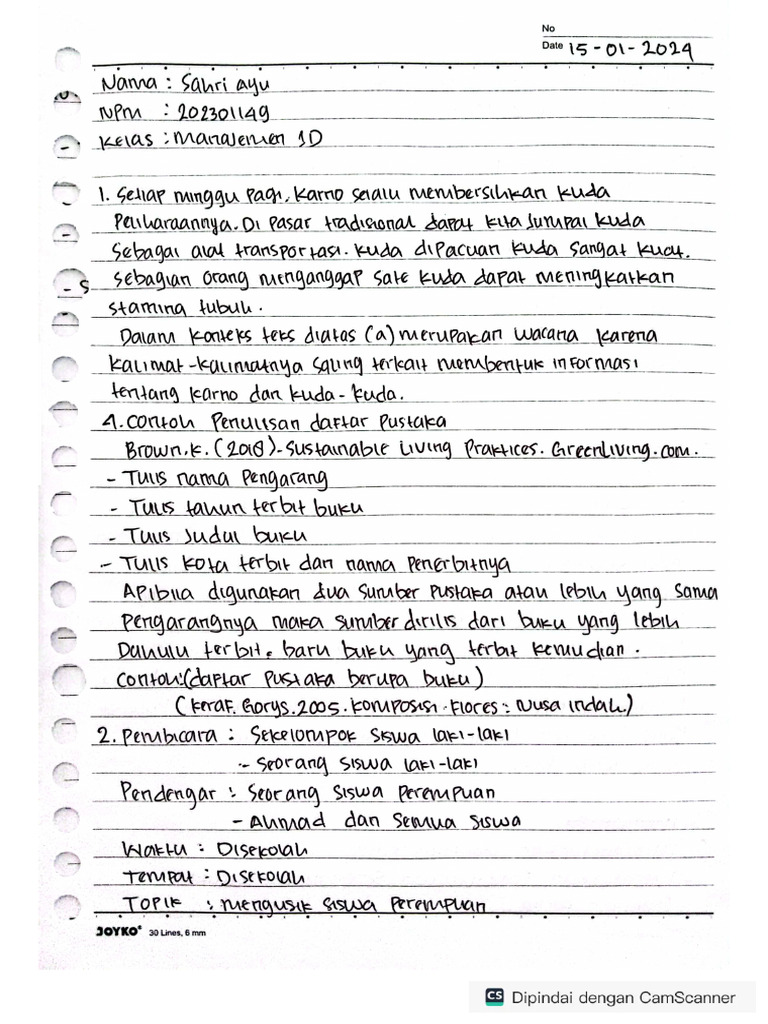 No
Date 15-01-2024
Nama : Sahri ayu
NPM : 202301149
Kelas : Manajemen 1D
1. Setiap minggu pagi, Karno selalu membersihkan kuda
Peliharaannya. Di pasar tradisional dapat kita jumpai kuda
Sebagai alat transportasi. Kuda dipacuan kuda sangat kuat.
Sebagian orang menganggap sate kuda dapat meningkatkan
stamina tubuh.
Dalam konteks teks diatas (a) merupakan wacana karena
kalimat-kalimatnya saling terkait membentuk informasi
tentang karno dan kuda-kuda.
4. Contoh Penulisan daftar Pustaka
Brown.K. (2018)-Sustainable Living Praktices. GreenLiving.com.
- Tulis nama Pengarang
- Tulis tahun terbit buku
- Tulis Judul buku
- Tulis kota terbit dan nama Penerbitnya
Apibila digunakan dua sumber pustaka atau lebih yang sama
Pengarangnya maka sumber dirilis dari buku yang lebih
Dahulu terbit, baru buku yang terbit kemudian.
Contoh:(daftar pustaka berupa buku)
(Keraf. Gorys.2005.Komposisi.Flores: Nusa indah.)
2. Pembicara : Sekelompok siswa laki-laki
- Seorang siswa laki-laki
Pendengar : Seorang siswa Perempuan
- Ahmad dan semua siswa
Waktu : Disekolah
Tempat : Disekolah
Topik : mengusik siswa Perempuan
JOYKO® 30 Lines, 6 mm
CS Dipindai dengan CamScanner